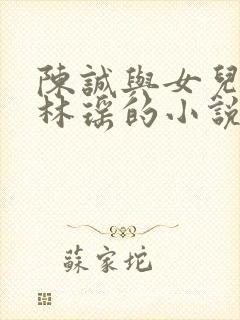 陳誠與女兒
林瑤的小說
蘇家坨